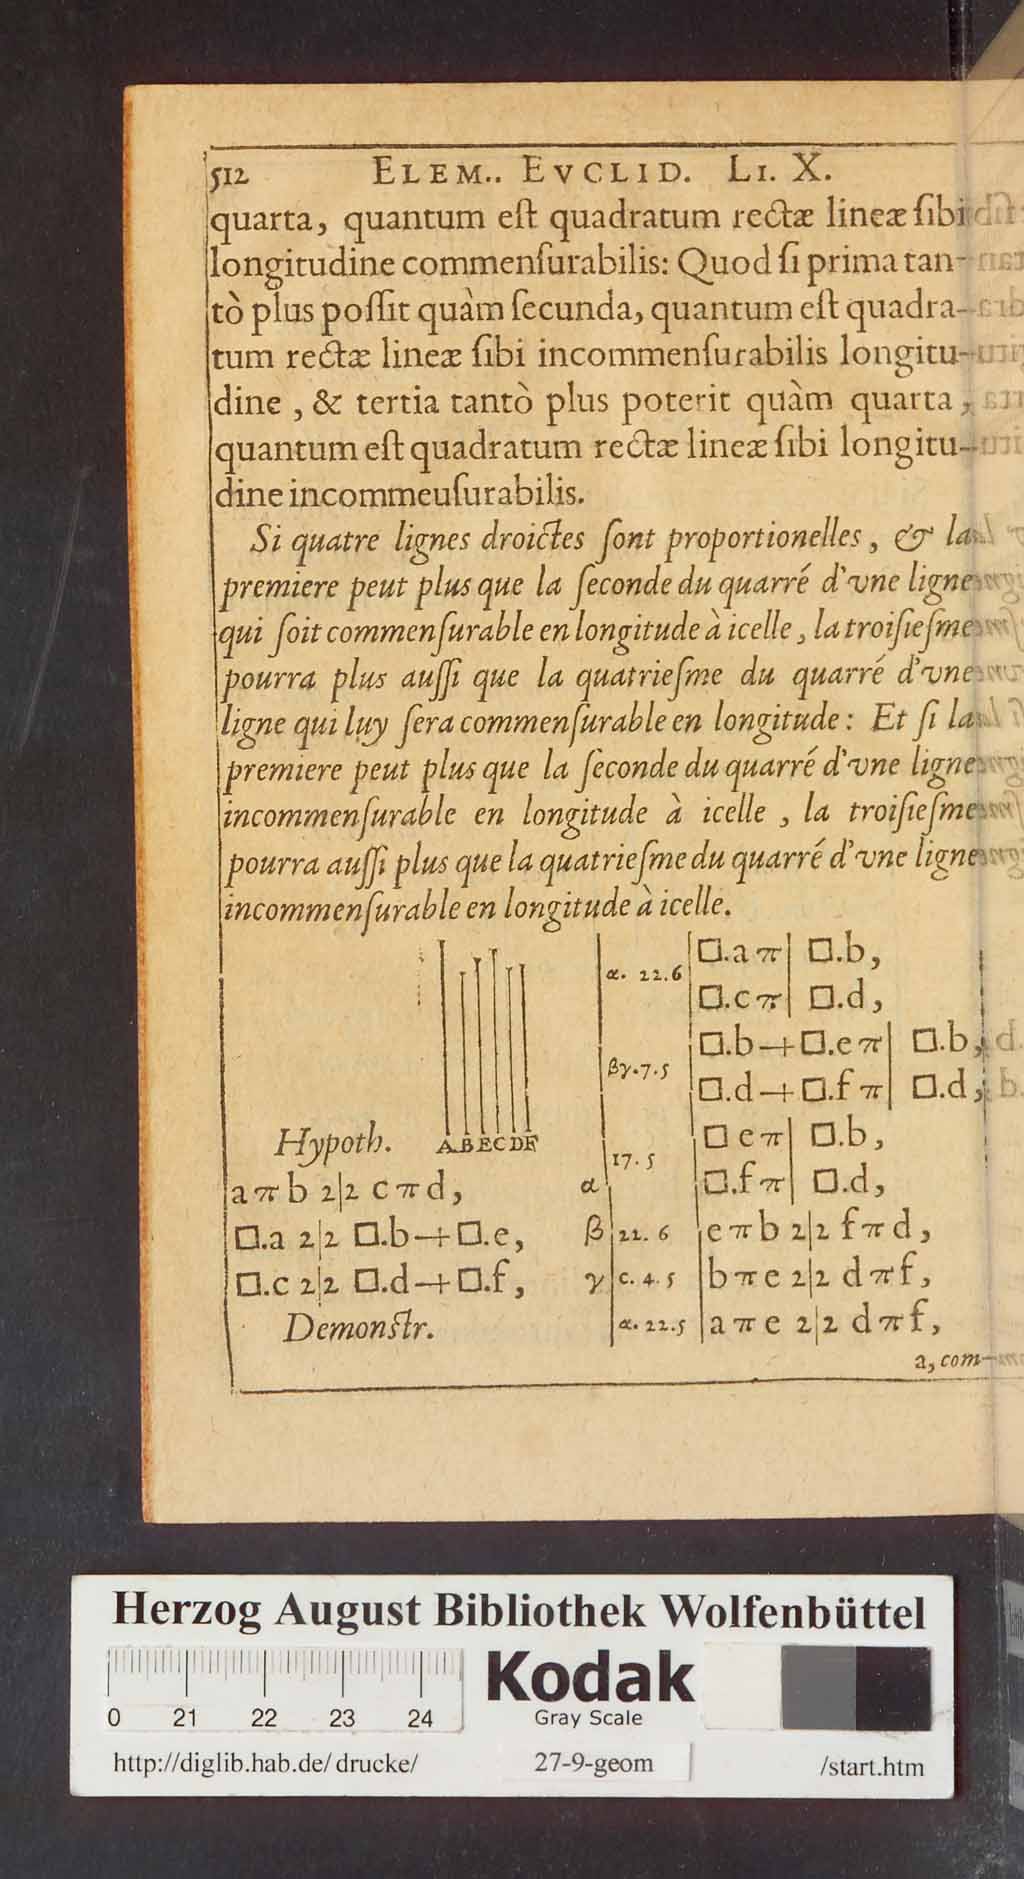 512 ELEM.. EVCLID. LI. X.
quarta, quantum eſt quadratum rectæ lineæ ſibi
longitudine commenſurabilis: Quod ſi prima tan-
tò plus poſſit quàm ſecunda, quantum eſt quadra-
tum rectæ lineæ ſibi incommenſurabilis longitu-
dine , & tertia tantò plus poterit quàm quarta ,
quantum eſt quadratum rectæ lineæ ſibi longitu-
dine incommeuſurabilis.
Si quatre lignes droictes ſont proportionelles , & la
premiere peut plus que la ſeconde du quarré d'vne ligne
qui ſoit commenſurable en longitude à icelle , la troiſieſme
pourra plus auſſi que la quatrieſme du quarré d'vne
ligne qui luy ſera commenſurable en longitude : Et ſi la
premiere peut plus que la ſeconde du quarré d'vne ligne
incommenſurable en longitude à icelle , la troiſieſme
pourra auſſi plus que la quatrieſme du quarré d'vne ligne
incommenſurable en longitude à icelle.
Hypoth. A B E C D F
a π b 2|2 c π d,
□.a 2|2 □.b+□.e,
□.c 2|2 □.d+□.f,
Demonſtr.
α. 22.6 □.a π| □.b,
□.c π| □.d,
βγ.7.5 □.b+□.e π| □.b,
□.d+□.f π| □.d,
17.5 □ e π| □.b,
α □.f π| □.d,
β 22. 6 e π b 2|2 f π d,
γ c. 4. 5 b π e 2|2 d π f,
α. 22.5 a π e 2|2 d π f,
a, com-
Herzog August Bibliothek Wolfenbüttel
0 21 22 23 24
Kodak
Gray Scale
http://diglib.hab.de/drucke/ 27-9-geom /start.htm